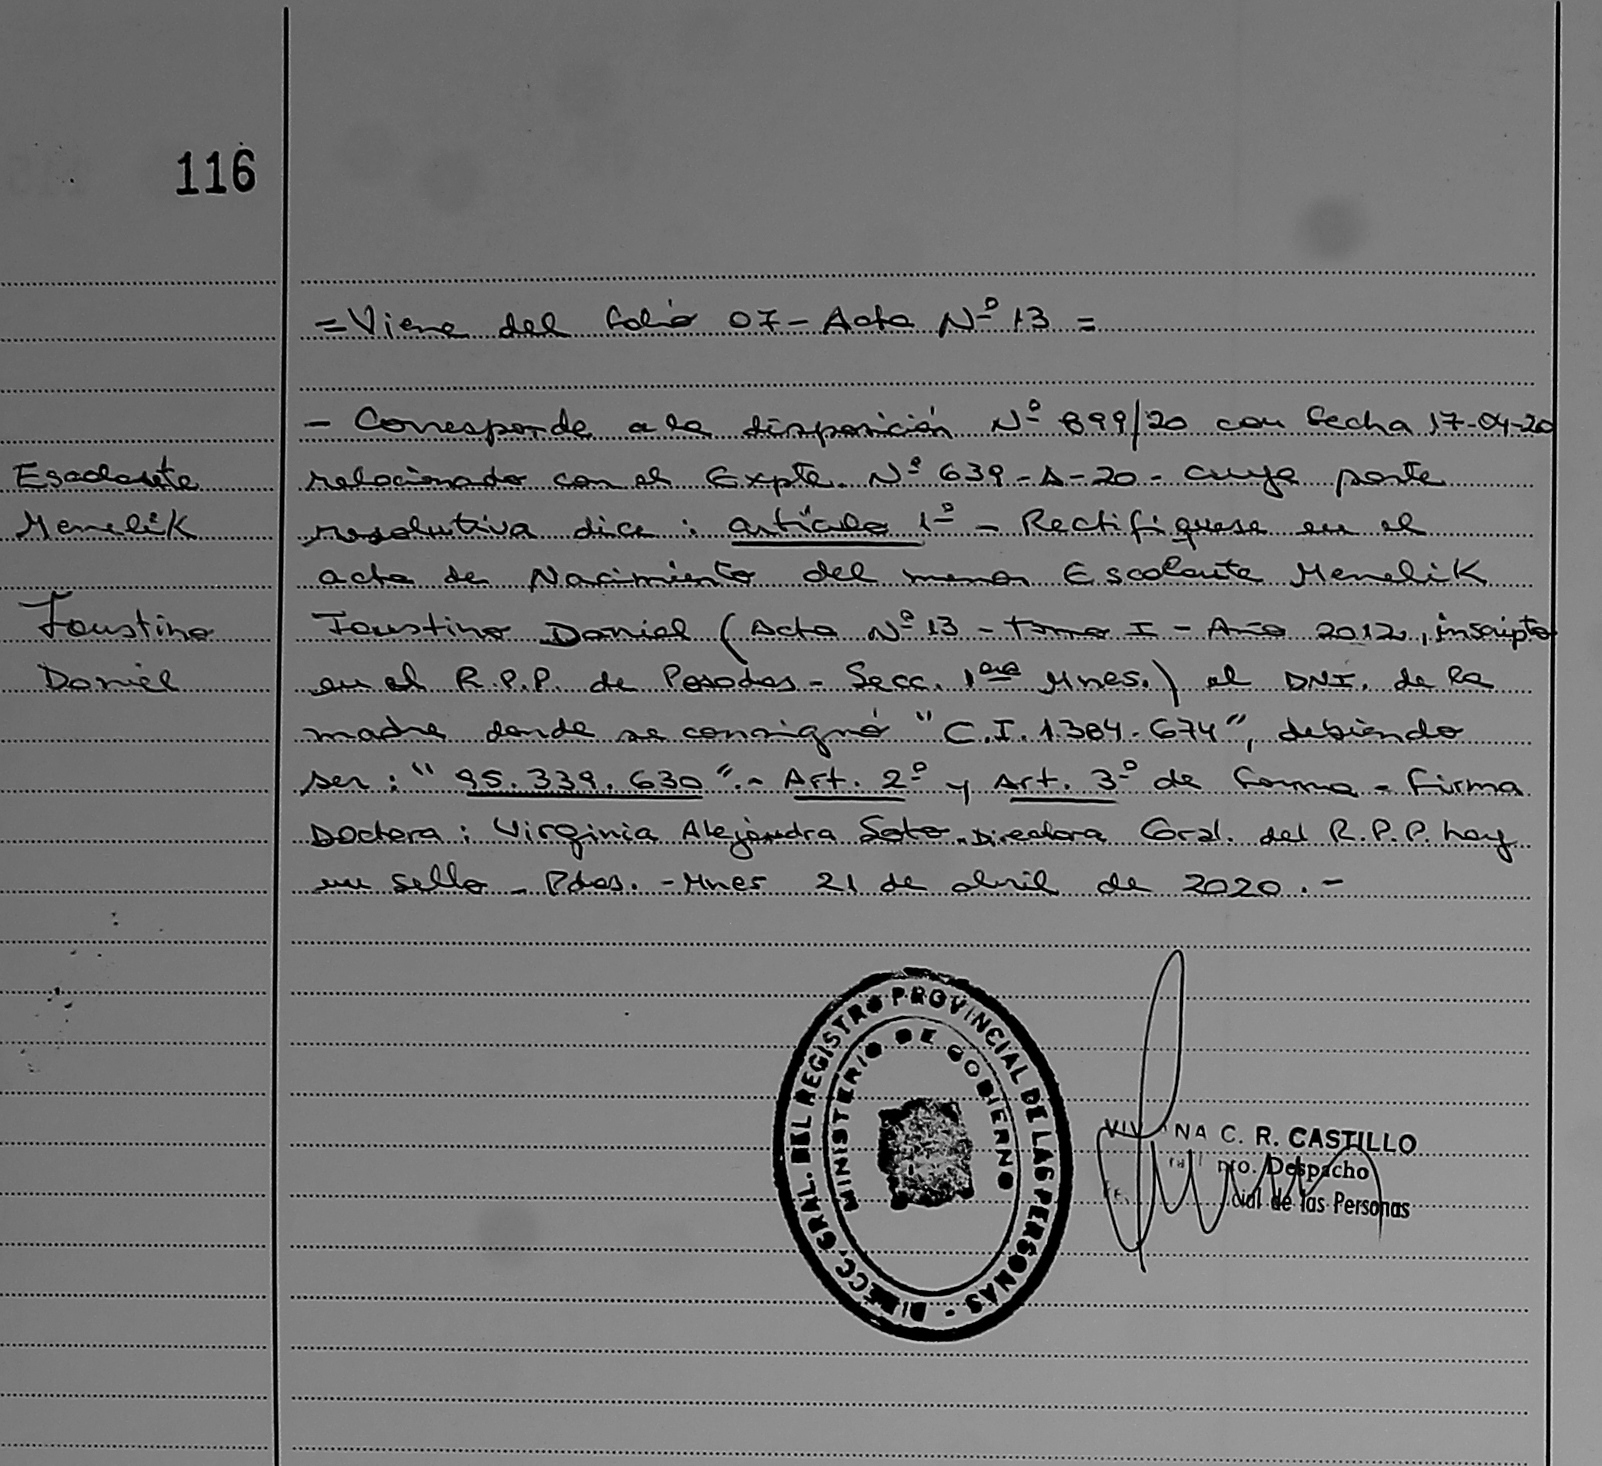 116
= Viene del folio 07 - Acta Nº 13 =
- Corresponde a la disposición Nº 899/20 con fecha 17-04-20
Escalante
relacionado con el Expte. Nº 639-A-20 - cuya parte
Menelik
resolutiva dice : artículo 1º - Rectifíquese en el
acta de Nacimiento del menor Escalante Menelik
Faustino
Faustino Daniel (Acta Nº 13 - tomo I - Año 2012, inscripto
Daniel
en el R.P.P. de Posadas - Secc. 1era Mnes.) el DNI. de la
madre donde se consignó "C.I. 1.384.674", debiendo
ser : "95.339.630".- Art. 2º y Art. 3º de forma - Firma
Doctora : Virginia Alejandra Soto. Directora Gral. del R.P.P. hay
un sello - Pdas. - Mnes 21 de abril de 2020 . -
DIRECC. GRAL. DEL REGISTRO PROVINCIAL DE LAS PERSONAS -
MINISTERIO DE GOBIERNO
C. R. CASTILLO
Despacho
de las Personas